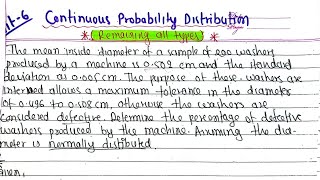 Continuous Probability Distribution
* Remaining all types *
The mean inside diameter of a sample of 200 washers
produced by a machine is 0.502 cm and the standard
deviation as 0.005 cm. The purpose of those washers are
intended allows a maximum tolerance in the diameter
of 0.496 to 0.508 cm, otherwise the washers are
considered defective. Determine the percentage of defective
washers produced by the machine. Assuming the dia-
meter is normally distibuted.